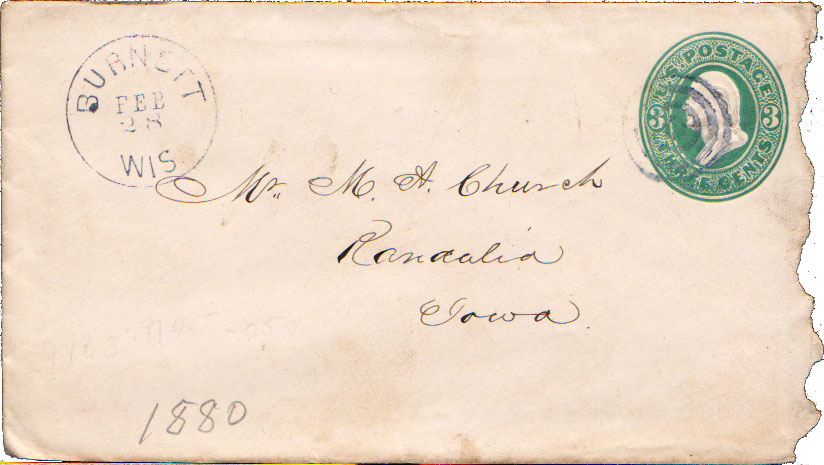 BURNETT
FEB
28
WIS
U.S. POSTAGE
3 3
THREE CENTS
Mr. M. A. Church
Randalia
Iowa
1880